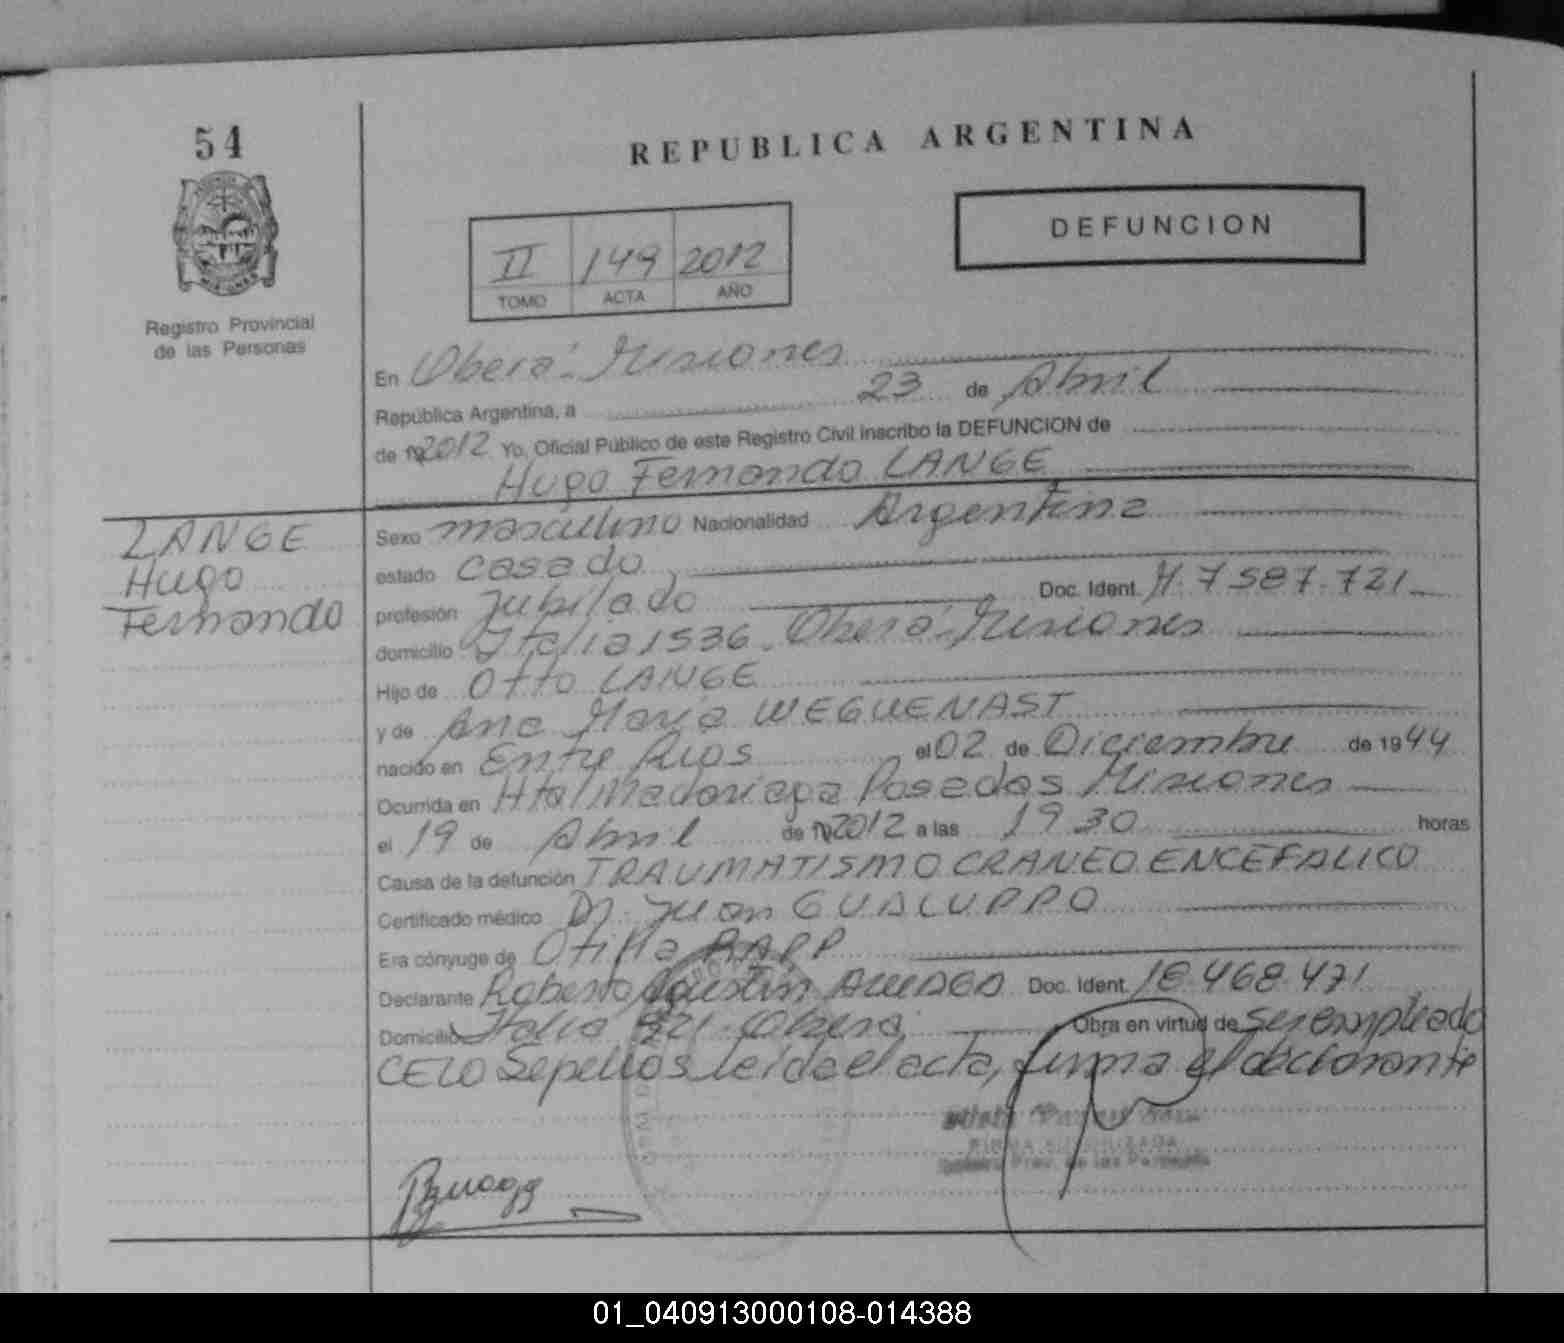 54
REPUBLICA ARGENTINA
DEFUNCION
II 149 2012
TOMO ACTA AÑO
Registro Provincial
de las Personas
En Oberá-Misiones
República Argentina, a 23 de Abril
de 2012 Yo, Oficial Público de este Registro Civil inscribo la DEFUNCION de
Hugo Fernando LANGE
LANGE
Hugo
Fernando
Sexo masculino Nacionalidad Argentina
estado casado
profesión Jubilado Doc. Ident. M. 7.587.721
domicilio Italia 1536. Oberá-Misiones
Hijo de Otto LANGE
y de Ana María WEGUENAST
nacido en Entre Rios el 02 de Diciembre de 1944
Ocurrida en Htal Madariaga Posadas Misiones
el 19 de Abril de 2012 a las 19 30 horas
Causa de la defunción TRAUMATISMO CRANEO ENCEFALICO
Certificado médico Dr. Juan GUALUPPO
Era cónyuge de Otilia RAPP
Declarante Roberto Agustin Doc. Ident. 18.468.471
Domicilio Italia 921 Oberá Obra en virtud de ser empleado
CELO Sepelios leída el acta, firma el declarante
FIRMA AUTORIZADA
Prov. de las Personas
01_040913000108-014388